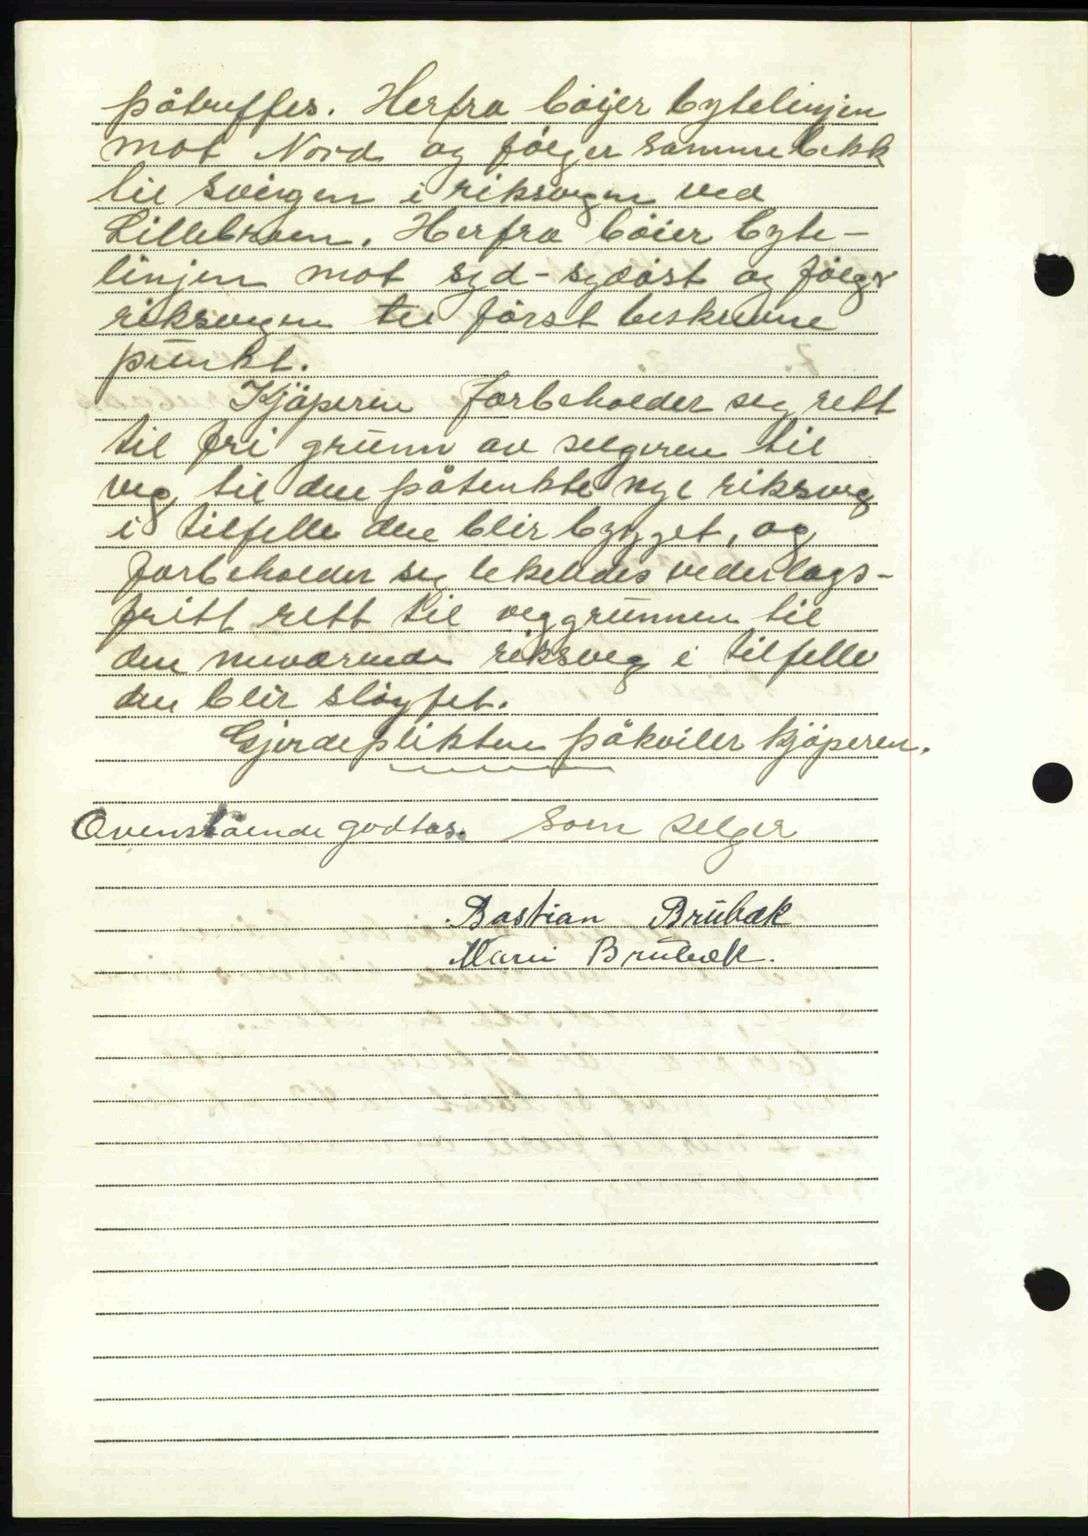 påtreffes. Herfra bøijer bytelinjen
mot Nord og følger samme bekk
til svingen i riksvegen ved
Lillebroen. Herfra bøier byte-
linjen mot syd-sydøst og følger
riksvegen til først beskrevne
punkt.
Kjøperen forbeholder seg rett
til fri grunn av selgeren til
veg til den påtenkte nye riksveg
i tilfelle den blir bygget, og
forbeholder seg likeledes vederlags-
fritt rett til veggrunnen til
den nuværende riksveg i tilfelle
den blir sløyfet.
Gjerdeplikten påkviler kjøperen.
Ovenstående godtas. Som selger
Bastian Brubæk
Maren Brubæk.